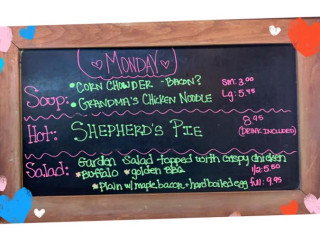 MONDAY
Soup: • CORN CHOWDER - BACON? sm: 3.00
• GRANDMA'S CHICKEN NOODLE Lg: 5.45
Hot: SHEPHERD'S PIE 8.95
(DRINK INCLUDED)
Salad: Garden Salad topped with crispy chicken
*BUFFALO *golden BBQ 1/2: 5.50
*Plain w/ maple, bacon, + hard boiled egg full: 9.95